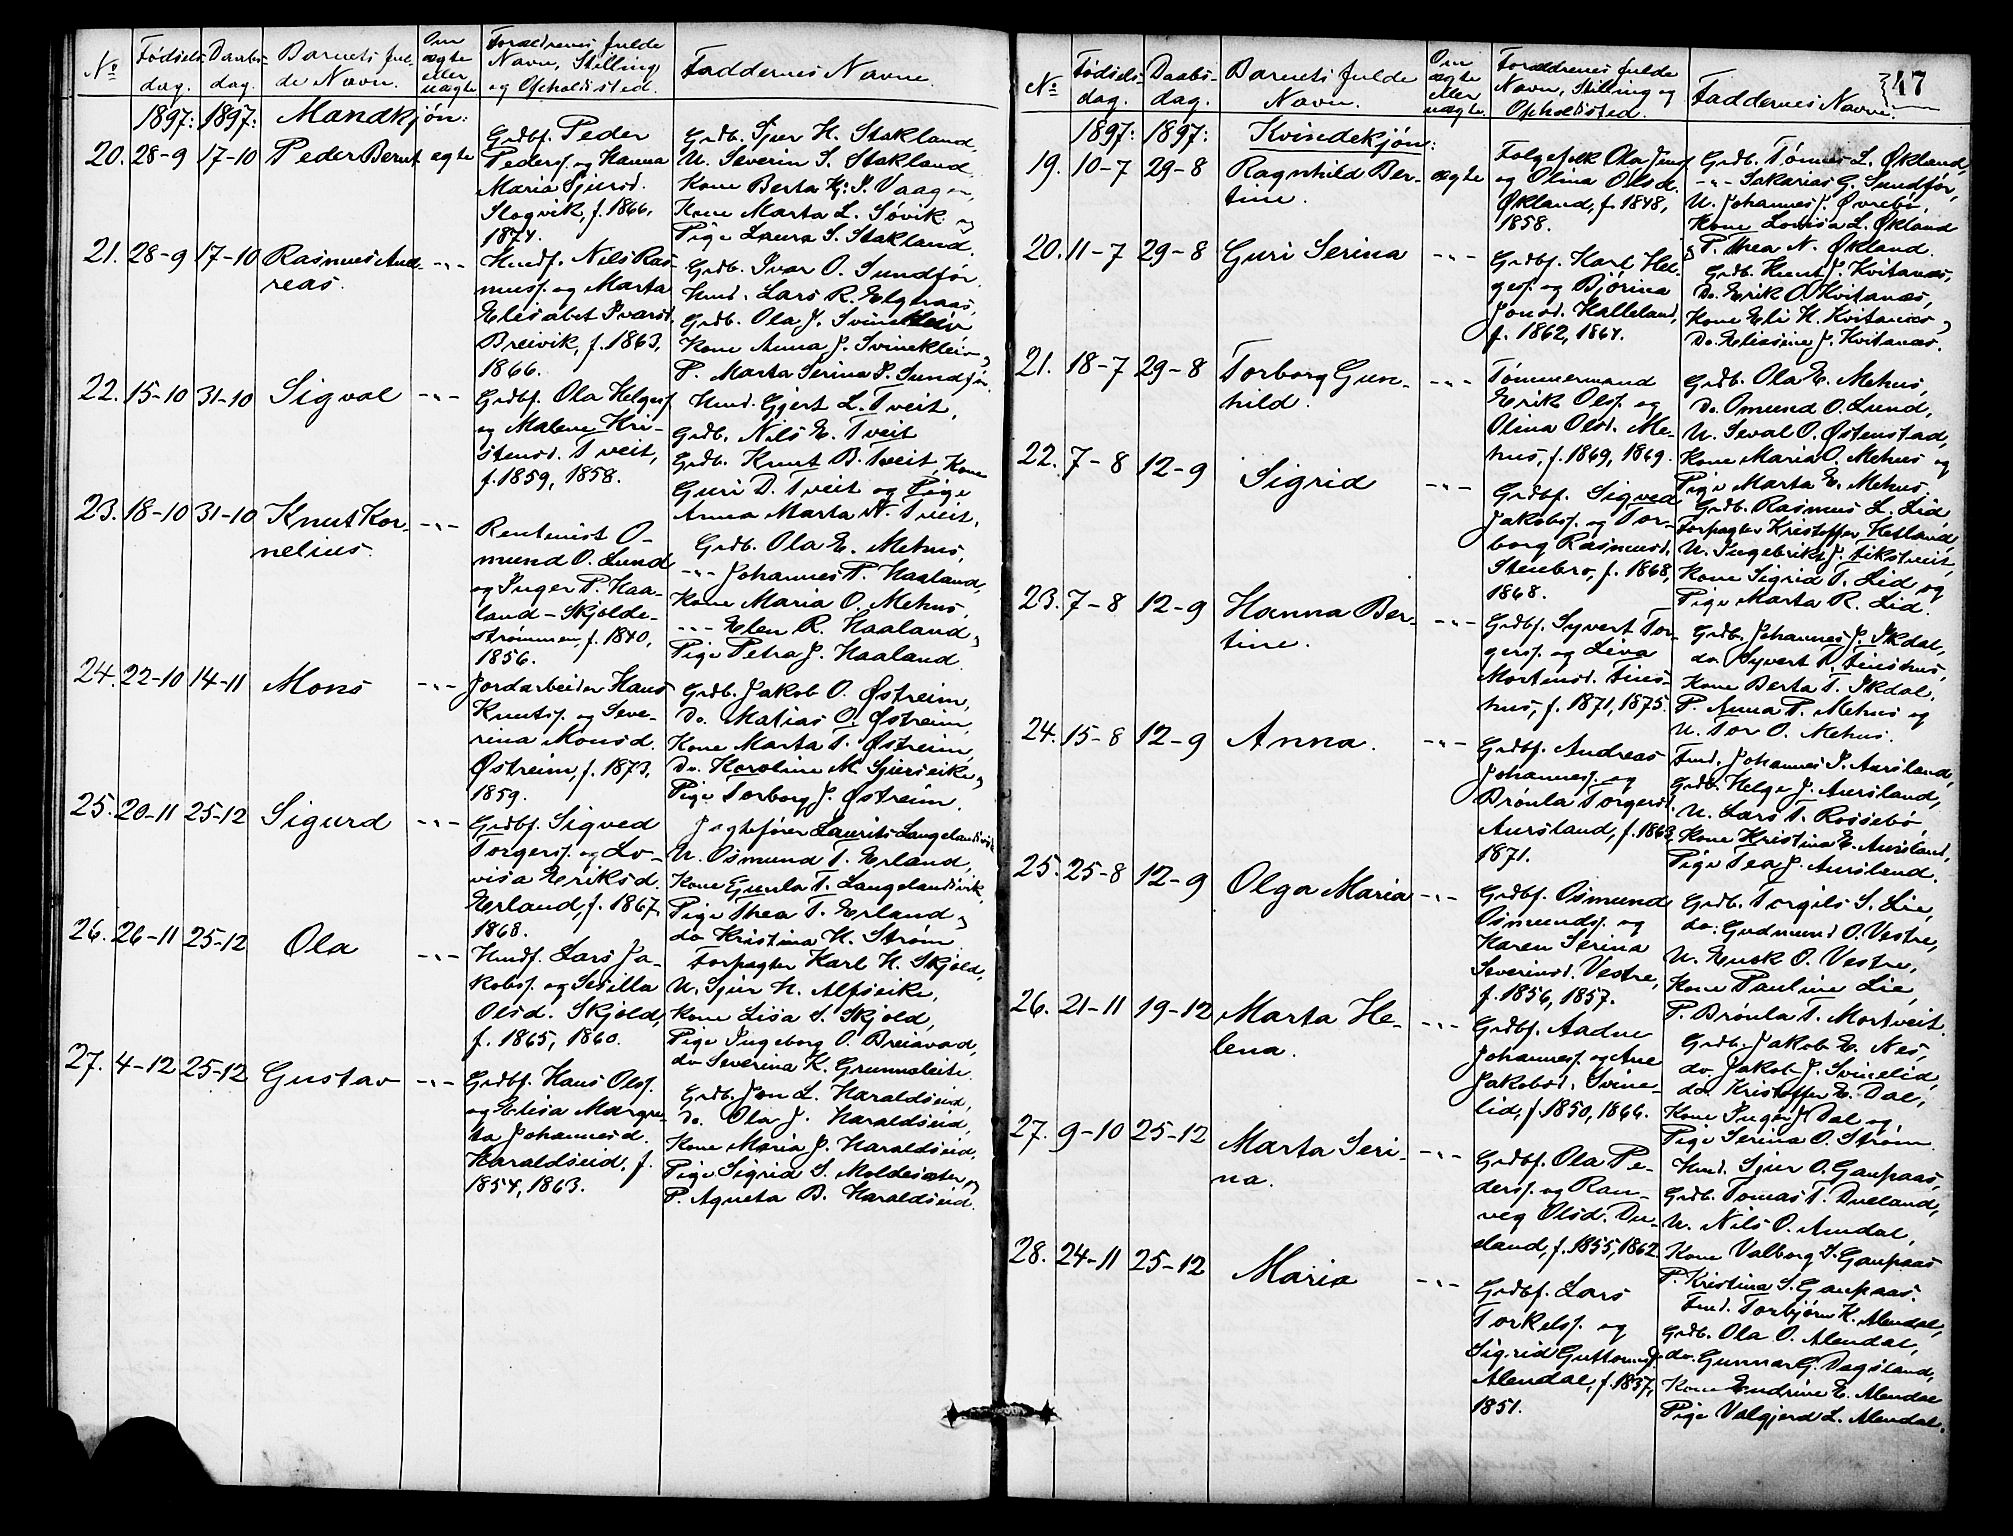 No
Fødsels-
dag.
Daabs-
dag.
Barnets ful-
de Navn.
Om
ægte
eller
uægte
Forældrenes fulde
Navn, Stilling
og Opholdssted.
Faddernes Navne.
1897: 1897: Mandkjøn:
20. 28-9 17-10 Peder Bernt ægte
Grdbr. Peder
Peders. og Hanna
Maria Sjursd.
Slogvik, f. 1866,
1874.
Grdb. Sjur H. Stakland,
U. Severin S. Stakland,
Kone Berta Kj. S. Vaagen,
Kone Marta L. Søvik og
Pige Laura S. Stakland.
21. 28-9 17-10 Rasmus And-
reas. -"-
Husf. Nils Ras-
muss. og Marta
Elisabet Ivarsd.
Breivik, f. 1863,
1866.
Grdb. Ivar O. Sundfør.
Husd. Lars R. Elgnaas,
Grdb. Ola J. Svinekleiv
Kone Anna J. Svinekleiv og
P. Marta Serina I. Sundfør.
22. 15-10 31-10 Sigval -"-
Grdbf. Ola Helges.
og Malene Kri-
stensd. Tveit,
f. 1859, 1858.
Husd. Gjert L. Tveit,
Grdb. Nils E. Tveit
Grdb. Knut B. Tveit, Kone
Guri D. Tveit og Pige
Anna Marta N. Tveit.
23. 18-10 31-10 Knut Kor-
nelius. -"-
Rentenist O-
mund O. Lund
og Inger P. Haa-
land - Skjolde-
strømmen f. 1840,
1856.
Grdb. Ola E. Mehus,
-"- Johannes P. Haaland,
Kone Maria O. Mehus,
-"- Elen R. Haaland og
Pige Petra J. Haaland.
24. 22-10 14-11 Mons -"-
Jordarbeider Hans
Knuts. og Seve-
rina Monsd.
Østreim, f. 1873,
1859.
Grdb. Jakob O. Østreim,
Do. Matias O. Østreim,
Kone Marta T. Østreim,
Do. Karoline M. Sjurseike og
Pige Torborg J. Østreim.
25. 20-11 25-12 Sigurd -"-
Grdbf. Sigved
Torgerss. og Lo-
visa Eriksd.
Erland, f. 1867,
1868.
Jagtefører Laurits Langelandsvik
U. Osmund T. Erland,
Kone Gunla T. Langelandsvik,
Pige Thea T. Erland og
do Kristina H. Strøm
26. 26-11 25-12 Ola -"-
Husf. Lars Ja-
kobs. og Sesilla
Olsd. Skjold,
f. 1865, 1860.
Forpagter Karl H. Skjold,
U. Sjur H. Alfseike,
Kone Lisa S. Skjold,
Pige Ingeborg O. Breiavad,
do Severina K. Grunnaleite.
27. 4-12 25-12 Gustav -"-
Grdbf. Hans Olss.
og Elisa Margre-
ta Johannesd.
Haraldseid, f.
1854, 1863.
Grdb. Jon L. Haraldseid,
Do. Ola J. Haraldseid,
Kone Maria J. Haraldseid,
Pige Sigrid S. Moldesæter og
P. Agneta B. Haraldseid.
17
No
Fødsels-
dag.
Daabs-
dag.
Barnets fulde
Navn.
Om
ægte
eller
uægte
Forældrenes fulde
Navn, Stilling og
Opholdssted.
Faddernes Navne.
1897: 1897: Kvindekjøn:
19. 10-7 29-8 Ragnhild Ber-
tine. ægte
Folgefolk Ola Jens.
og Olina Olsd.
Økland, f. 1848,
1858.
Grdb. Tønnes L. Økland,
-"- Sakarias G. Sundfør,
U. Johannes J. Øvrebø,
Kone Lovisa L. Økland
og P. Thea N. Økland.
20. 11-7 29-8 Guri Serina -"-
Grdbf. Karl Hel-
ges. og Bjørina
Jonsd. Halleland,
f. 1862, 1864.
Grdb. Knut J. Kvitanæs,
Do. Erik O. Kvitanæs,
Kone Eli H. Kvitanæs og
Do. Eliasine J. Kvitanæs.
21. 18-7 29-8 Torborg Gun-
hild. -"-
Tømmermand
Erik Ols. og
Olina Olsd. Me-
hus, f. 1869, 1869.
Grdb. Ola E. Mehus,
Do. Omund O. Lund,
U. Seval O. Østenstad,
Kone Maria O. Mehus og
Pige Marta E. Mehus.
22. 7-8 12-9 Sigrid -"-
Grdbf. Sigved
Jakobs. og Tor-
borg Rasmusd.
Stenbro, f. 1868,
1868.
Grdb. Rasmus L. Lid
Forpagter Kristoffer Hetland,
U. Ingebrikt J. Fikstveit,
Kone Sigrid T. Lid og
Pige Marta R. Lid.
23. 7-8 12-9 Hanna Ber-
tine. -"-
Grdbf. Syvert Tor-
gerss. og Liva
Mortensd. Fins-
hus, f. 1871, 1875.
Grdb. Johannes J. Skdal,
do. Syvert T. Finshus,
Kone Berta T. Skdal,
P. Anna P. Mehus og
U. Tor O. Mehus.
24. 15-8 12-9 Anna. -"-
Grdbf. Andreas
Johanness. og
Brønla Torgersd.
Aursland, f. 1863,
1871.
Fmd. Johannes I. Aursland,
Grdb. Helge J. Aursland,
U. Lars T. Rossebø,
Kone Kristina E. Aursland,
Pige Tea J. Aursland.
25. 25-8 12-9 Olga Maria -"-
Grdbf. Osmund
Osmunds. og
Karen Serina
Severinsd. Vestre,
f. 1856, 1857.
Grdb. Torgils S. Lie,
do. Gudmund O. Vestre,
U. Enok O. Vestre,
Kone Pauline Lie,
P. Brønla T. Mortveit.
26. 21-11 19-12 Marta He-
lena. -"-
Grdbf. Aadne
Johanness. og Ane
Jakobsd. Svine-
lid, f. 1850, 1866.
Grdb. Jakob E. Nes,
do. Jakob J. Svinelid,
do. Kristoffer E. Dal,
Kone Inger J. Dal og
Pige Serina O. Strøm
27. 9-10 25-12 Marta Seri-
na. -"-
Grdbf. Ola Pe-
derss. og Ran-
veg Olsd. Du-
eland, f. 1855, 1862.
Husd. Sjur O. Gaupaas,
Grdb. Tomas T. Dueland,
U. Nils O. Amdal,
Kone Valborg S. Gaupaas
P. Kristina S. Gaupaas.
28. 24-11 25-12 Maria -"-
Grdbf. Lars
Torkels. og
Sigrid Guttormsd.
Alendal, f. 1837,
1851.
Fmd. Torbjørn K. Alendal,
Grdb. Ola O. Alendal,
do. Gunnar G. Dagsland,
Kone Endrine E. Alendal
Pige Valgjerd L. Alendal.